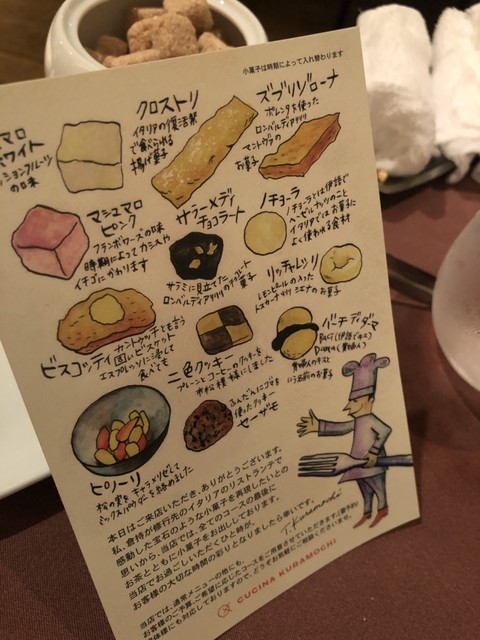 小菓子は時期によって入れ替わります
マロ
ワイト
ションフルーツ
の味
クロストリ
イタリアの復活祭
で食べられる
揚げ菓子
ズブリゾローナ
ポレンタを使った
ロンバルディア州
マントヴァの
お菓子
マシュマロ
ピンク
フランボワーズの味
時期によってカシスや
イチゴにかわります
サラーメディ
チョコラート
サラミに見立てたチョコレート菓子
ロンバルディア州
ノチョーラ
ノチョーラとは伊語で
ヘーゼルナッツのこと
イタリアではお菓子に
よく使われる食材
リッチャレッリ
レモンピールの入った
トスカーナ州シエナのお菓子
ビスコッティ
カントゥッチとも言う
固いビスケット
エスプレッソに浸して
食べても
二色クッキー
プレーンとコーヒーのクッキーを
市松模様にしました
バーチディダーマ
Baci(伊語でキス)
Dama(貴婦人)
貴婦人のキスと
いう名前のお菓子
ピノーリ
松の実をキャラメリゼして
ミックスパウダーを絡めました
セーザモ
ふんだんにゴマを
使ったクッキー
本日はご来店いただき、ありがとうございます。
私、倉持が修行先のイタリアのリストランテで
感動した宝石のような小菓子を再現したいとの
思いから、当店では、全てのコースの最後に
お茶とともに小菓子をお出ししております。
当店でお過ごしいただくひと時が、
お客様の大切な時間の彩りとなりましたら幸いです。
T. Kuramochi
当店では、通常メニューの他にも、
お客様のご予算・ご希望に応じたコースをご用意させていただきます。(要予約)
味様にも対応しておりますので、どうぞお気軽にご相談くださいませ。
CUCINA KURAMOCHI